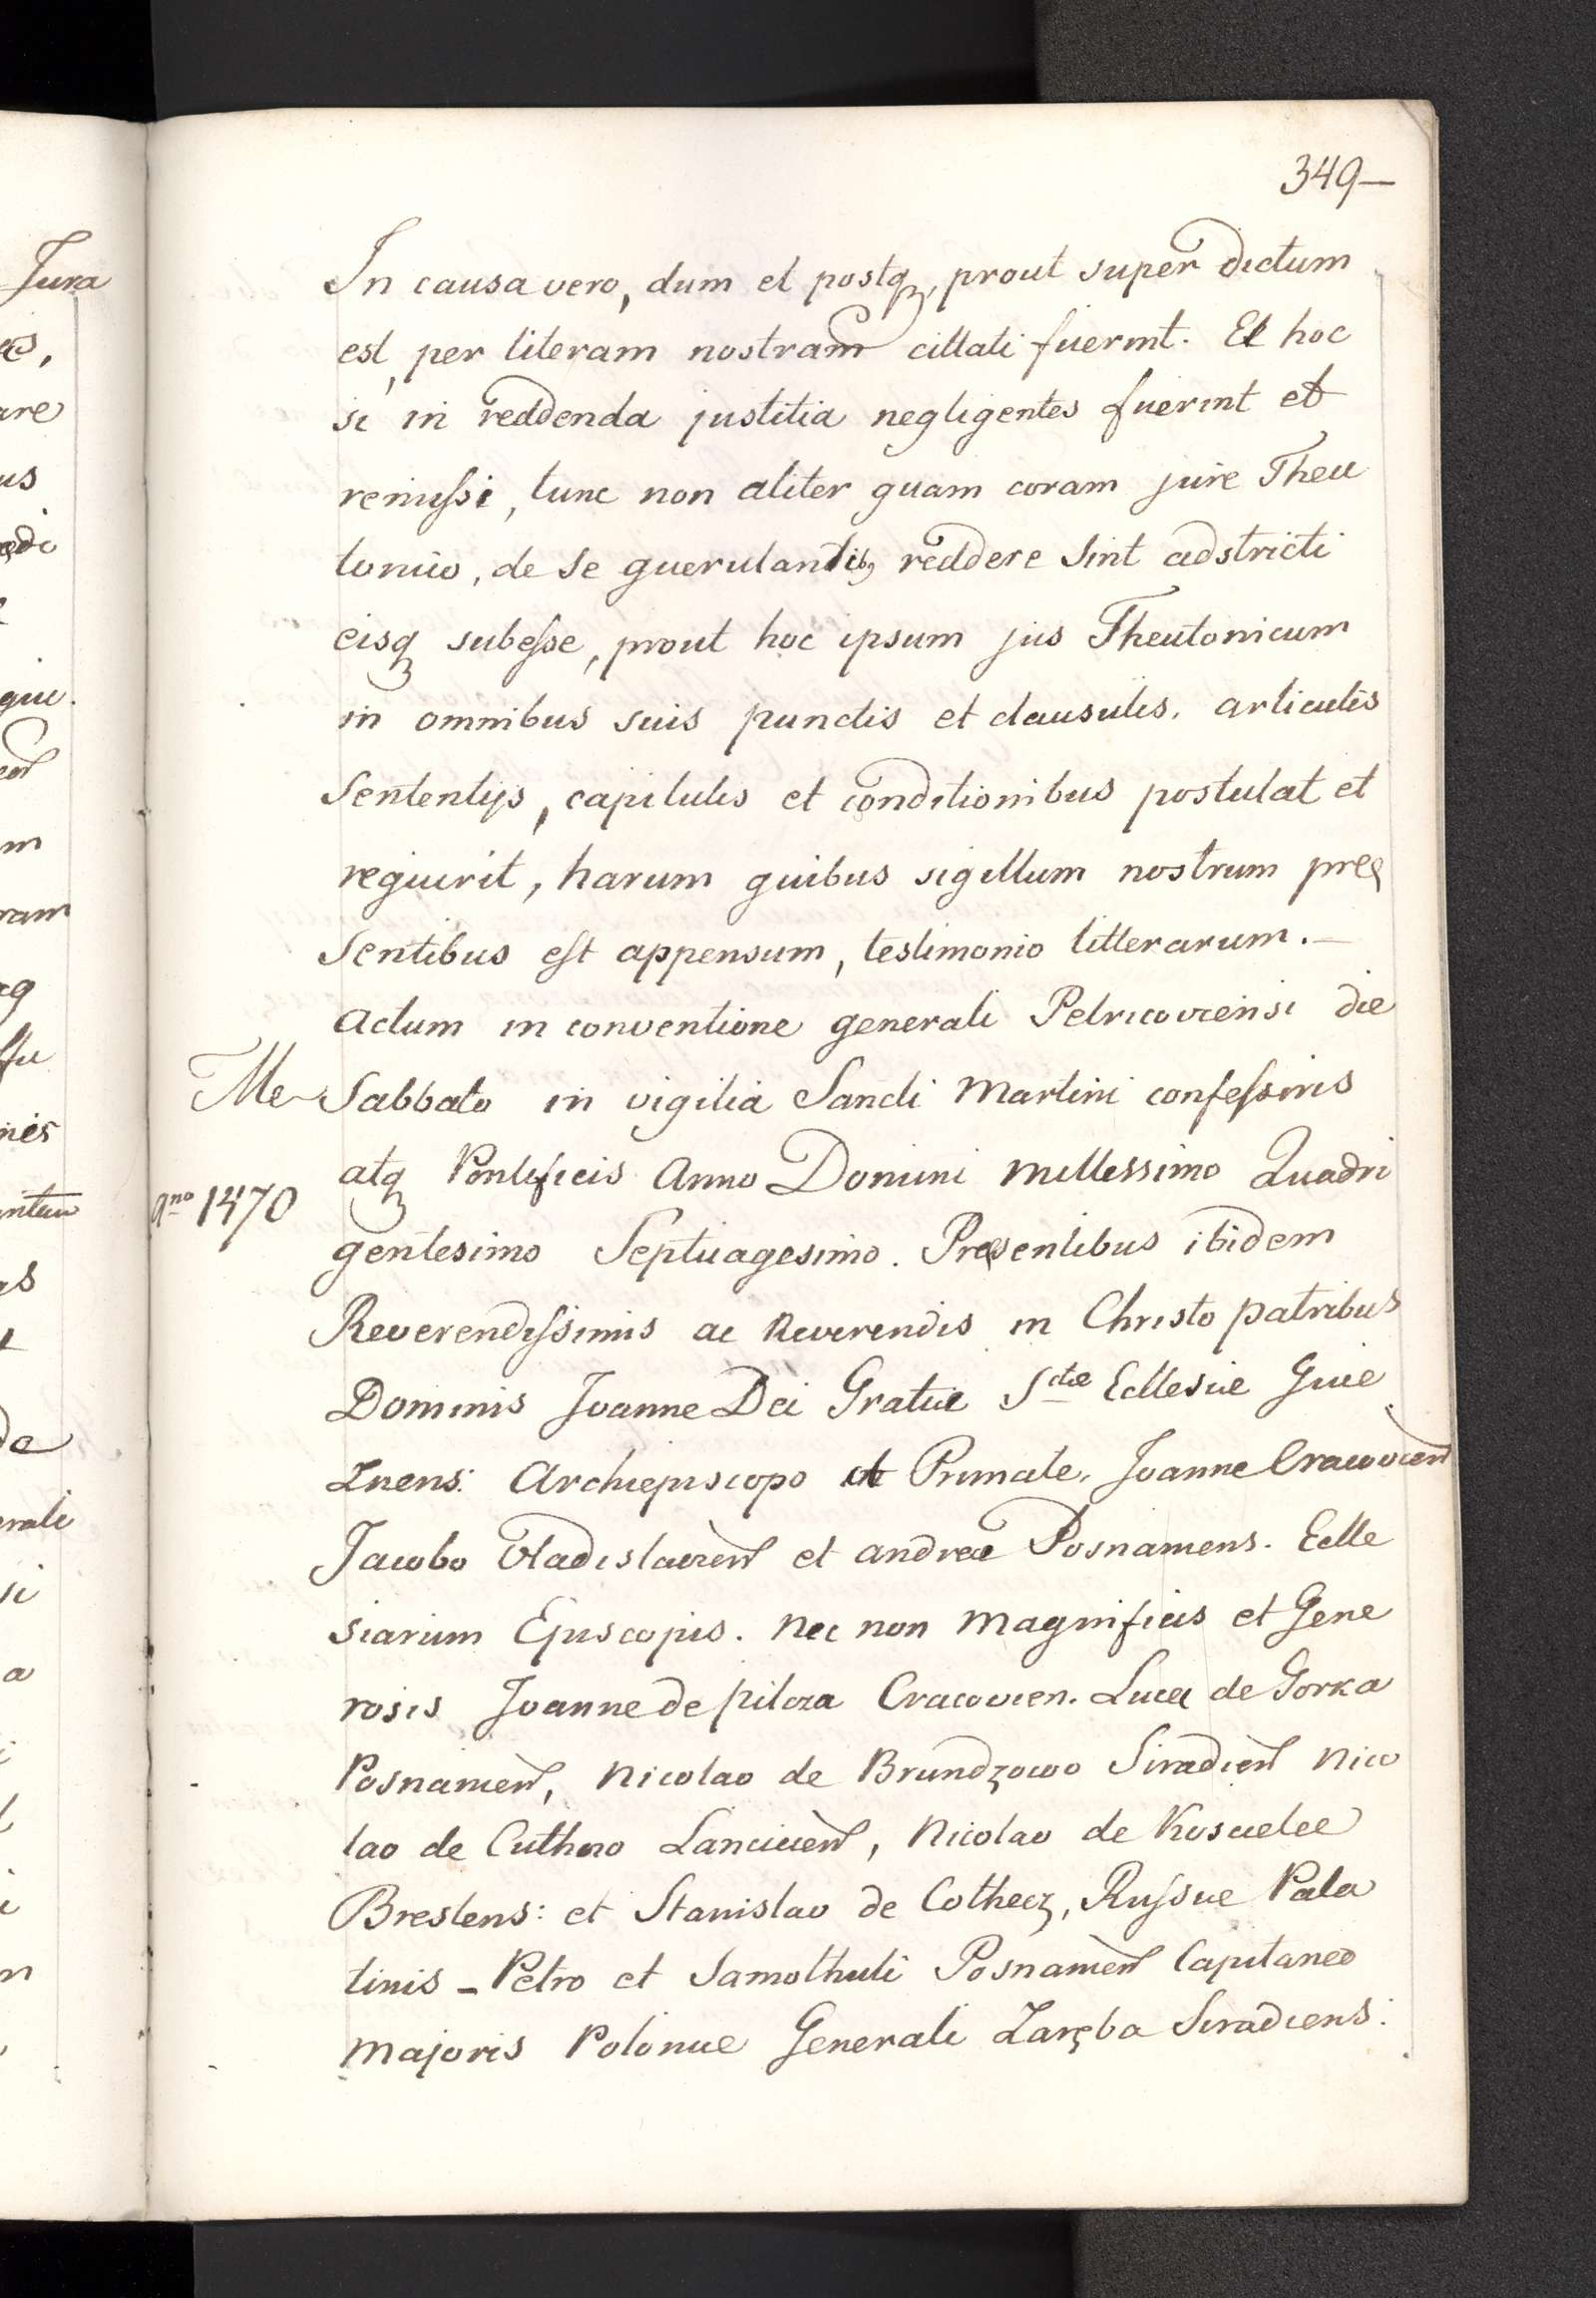 349—
In causa vero, dum et postqꝫ, prout super dictum
est, per literam nostram cittati fuerint. Et hoc
si in reddenda justitia negligentes fuerint et
remissi, tunc non aliter quam coram jure Theu
tonico, de se querulantibꝫ reddere sint adstricti
eisqꝫ subesse, prout hoc ipsum jus Theutonicum
in omnibus suis punctis et clausulis, articulis
Sententijs, capitulis et conditionibus postulat et
requirit, harum quibus sigillum nostrum pręę
sentibus est appensum, testimonio litterarum.—
Actum in conventione generali Petricoviensi die
Me Sabbato in vigilia Sancti Martini confessoris
atqꝫ Pontificis Anno Domini Millessimo Quadri
Ano 1470
gentesimo Septuagesimo. Presentibus ibidem
Reverendissimis ac Reverendis in Christo patribus
Dominis Joanne Dei Gratia Sctae Ecclesiae Gnie
znens: Archiepiscopo et Primate, Joanne Cracovien
Jacobo Vladislavien et Andrea Posnaniens. Eccle
siarum Episcopis. Nec non Magnificis et Gene
rosis Joanne de pilcza Cracovien. Luca de Gorka
Posnanien, Nicolao de Brundzowo Siradien Nico
lao de Cuthno Lancicien, Nicolao de Koscielee
Brestens: et Stanislao de Cothecz, Russiae Pala
tinis – Petro et Samothuli Posnanien Capitaneo
Majoris Poloniae Generali Zaręba Siradiens:
Jura
are
us
que.
ram
nes
erali
si
a